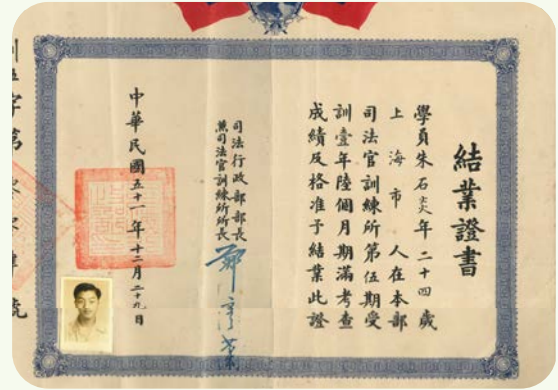 結業證書
學員朱石炎年二十四歲
上海市 人在本部
司法官訓練所第伍期受
訓壹年陸個月期滿考查
成績及格准予結業此證
司法行政部部長
兼司法官訓練所所長
鄭彥棻
中華民國五十一年十二月二十九日
字第 號